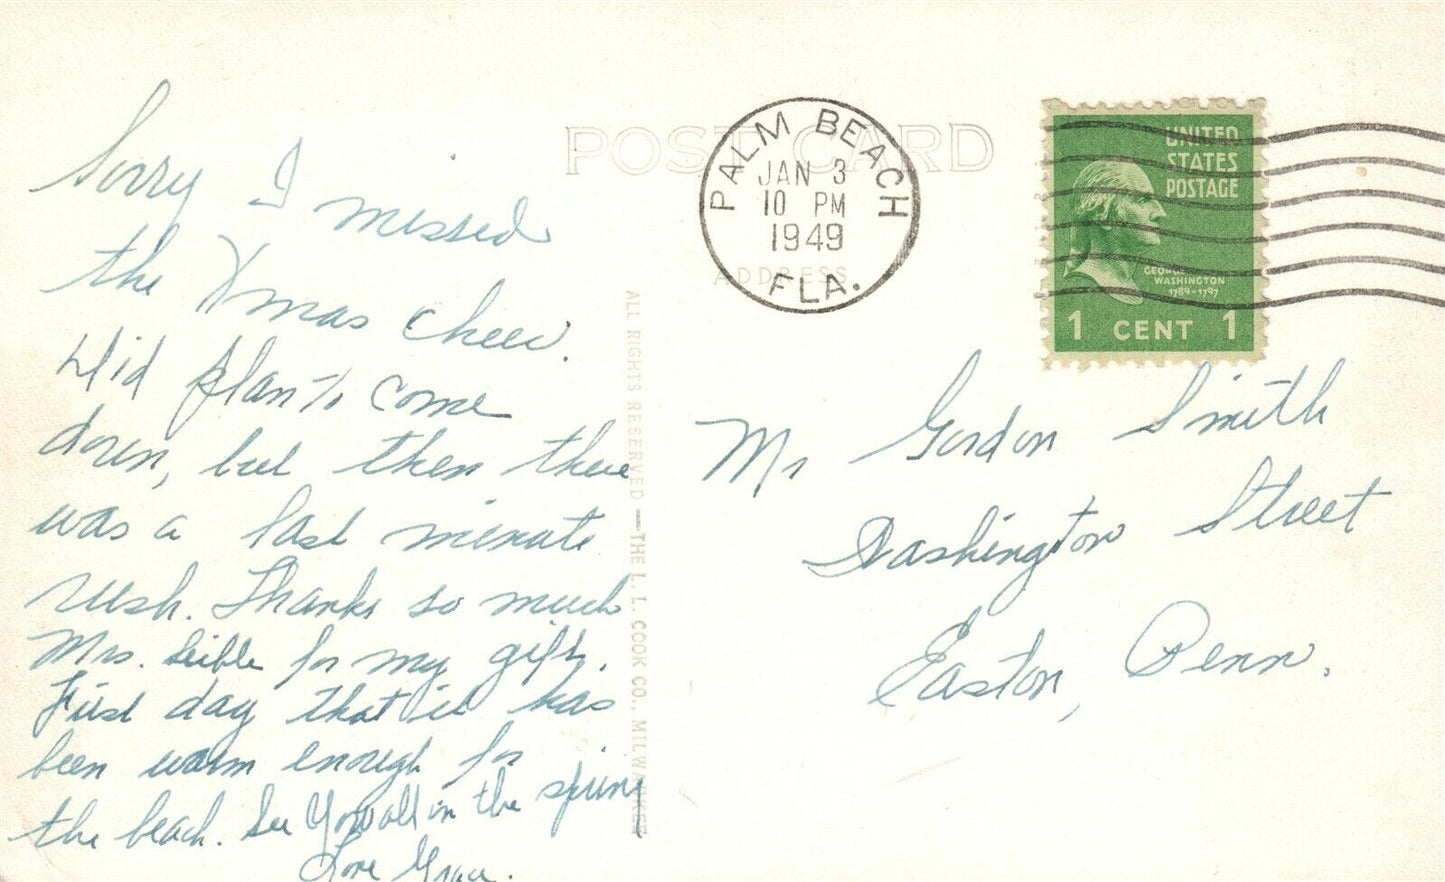 Sorry I missed
the Xmas cheer.
Did plan to come
down, but then there
was a last minute
rush. Thanks so much
Mrs. Seible for my gift.
First day that it has
been warm enough for
the beach. See You all in the spring
Love Grace.
POST CARD
ADDRESS
PALM BEACH
JAN 3
10 PM
1949
FLA.
UNITED
STATES
POSTAGE
GEORGE
WASHINGTON
1789-1797
1 CENT 1
Mr Gordon Smith
Washington Street
Easton, Penn.
ALL RIGHTS RESERVED — THE L. L. COOK CO., MILWAUKEE